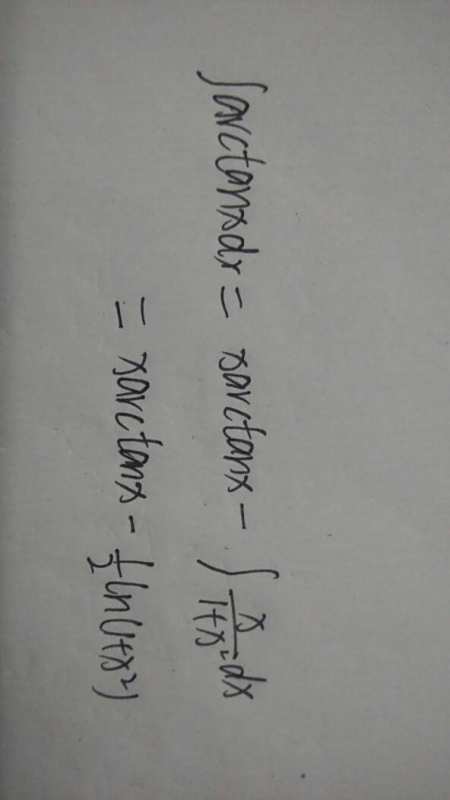 ∫arctanxdx = xarctanx - ∫ x/(1+x²) dx
= xarctanx - 1/2 ln(1+x²)